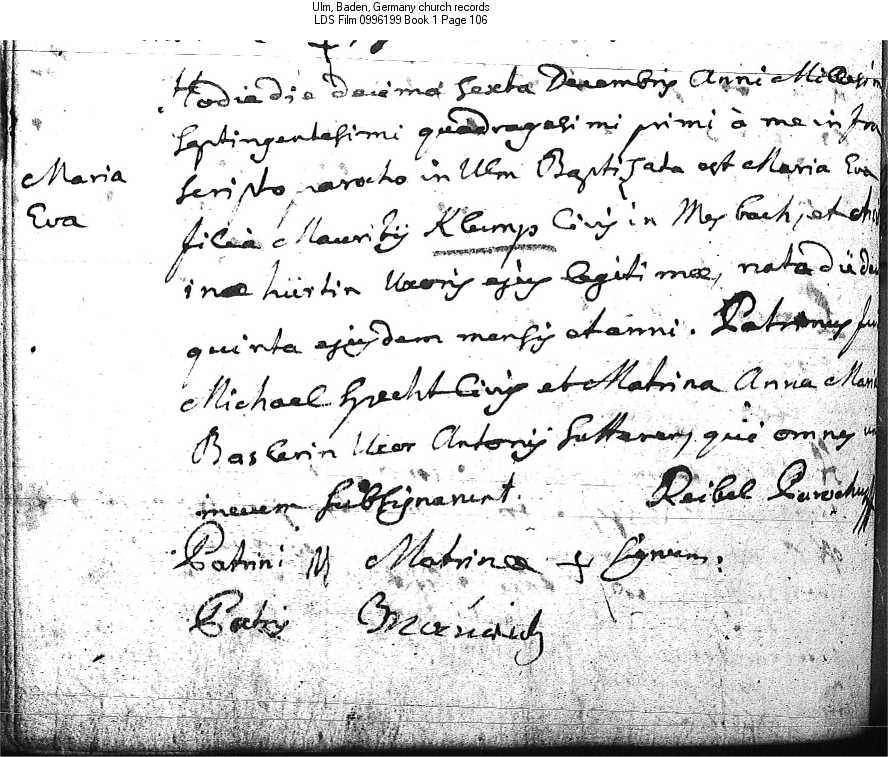 Ulm, Baden, Germany church records
LDS Film 0996199 Book 1 Page 106
Hodie die decima sexta Decembris Anni Millesim
septingentesimi quadragesimi primi à me infra
Maria
Eva
scripto parocho in Ulm Baptizata est Maria Eva
filia Mauritÿ Klump Civis in Mesbach, et
inæ hürtin Uxoris ejus legitimæ, nata die
quinta ejusdem mensis et anni. Patrinus fu
Michael Hecht Civis et Matrina Anna Mari
Baslerin Uxor Antonÿ Sutterer, qui omnes
mecum subsignarunt. Reibel Parochus
Patrini M Matrinæ + Signum:
Patris